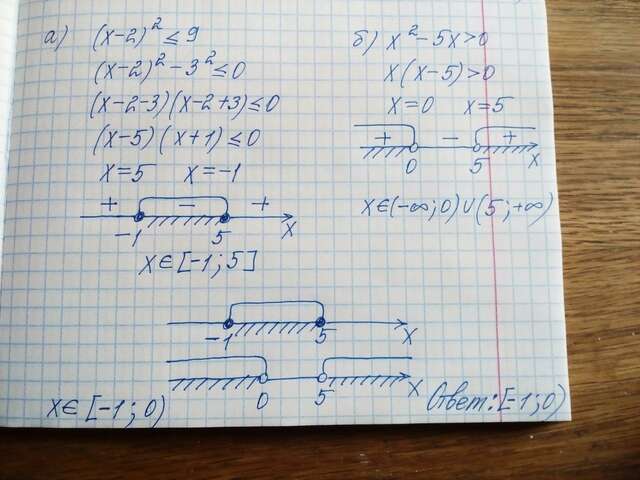 а) (x-2)² ≤ 9
(x-2)² - 3² ≤ 0
(x-2-3)(x-2+3) ≤ 0
(x-5)(x+1) ≤ 0
x=5 x=-1
+ - +
-1 5 x
x∈[-1; 5]
б) x² - 5x > 0
x(x-5) > 0
x=0 x=5
+ - +
0 5 x
x∈(-∞; 0)∪(5; +∞)
-1 5 x
0 5 x
x∈[-1; 0)
Ответ: [-1; 0)